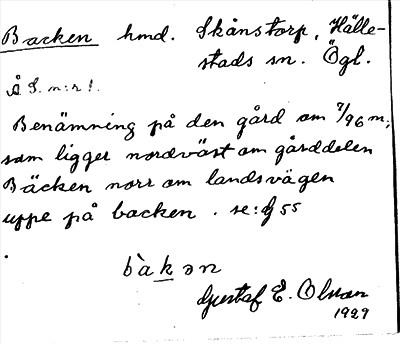 Backen hmd. Skånstorp, Hälle-
stads sn. Ögl.
Å S. n:r 1.
Benämning på den gård om 7/96 m;
som ligger nordväst om gårddelen
Bäcken norr om landsvägen
uppe på backen. se: 55
bàkən
Gustaf E. Olsson
1929